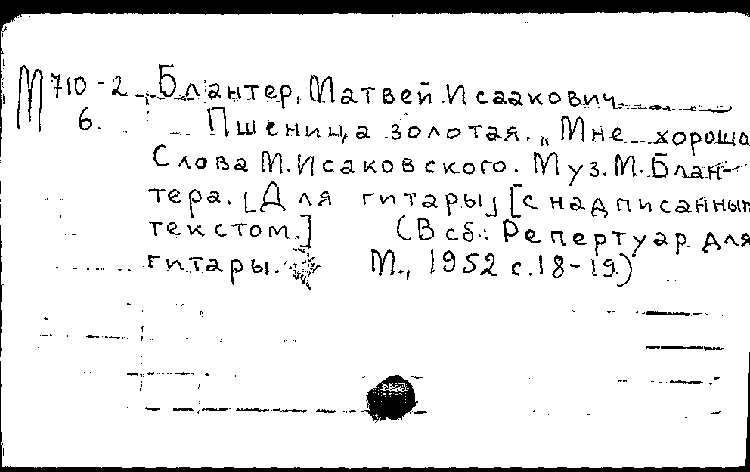 М 710-2 Блантер, Матвей Исаакович
6. Пшеница золотая. „Мне хороша
Слова М.Исаковского. Муз. М. Блан-
тера. [Для гитары] [с надписанным
текстом.] (В сб.: Репертуар для
гитары. М., 1952 с. 18-19.)